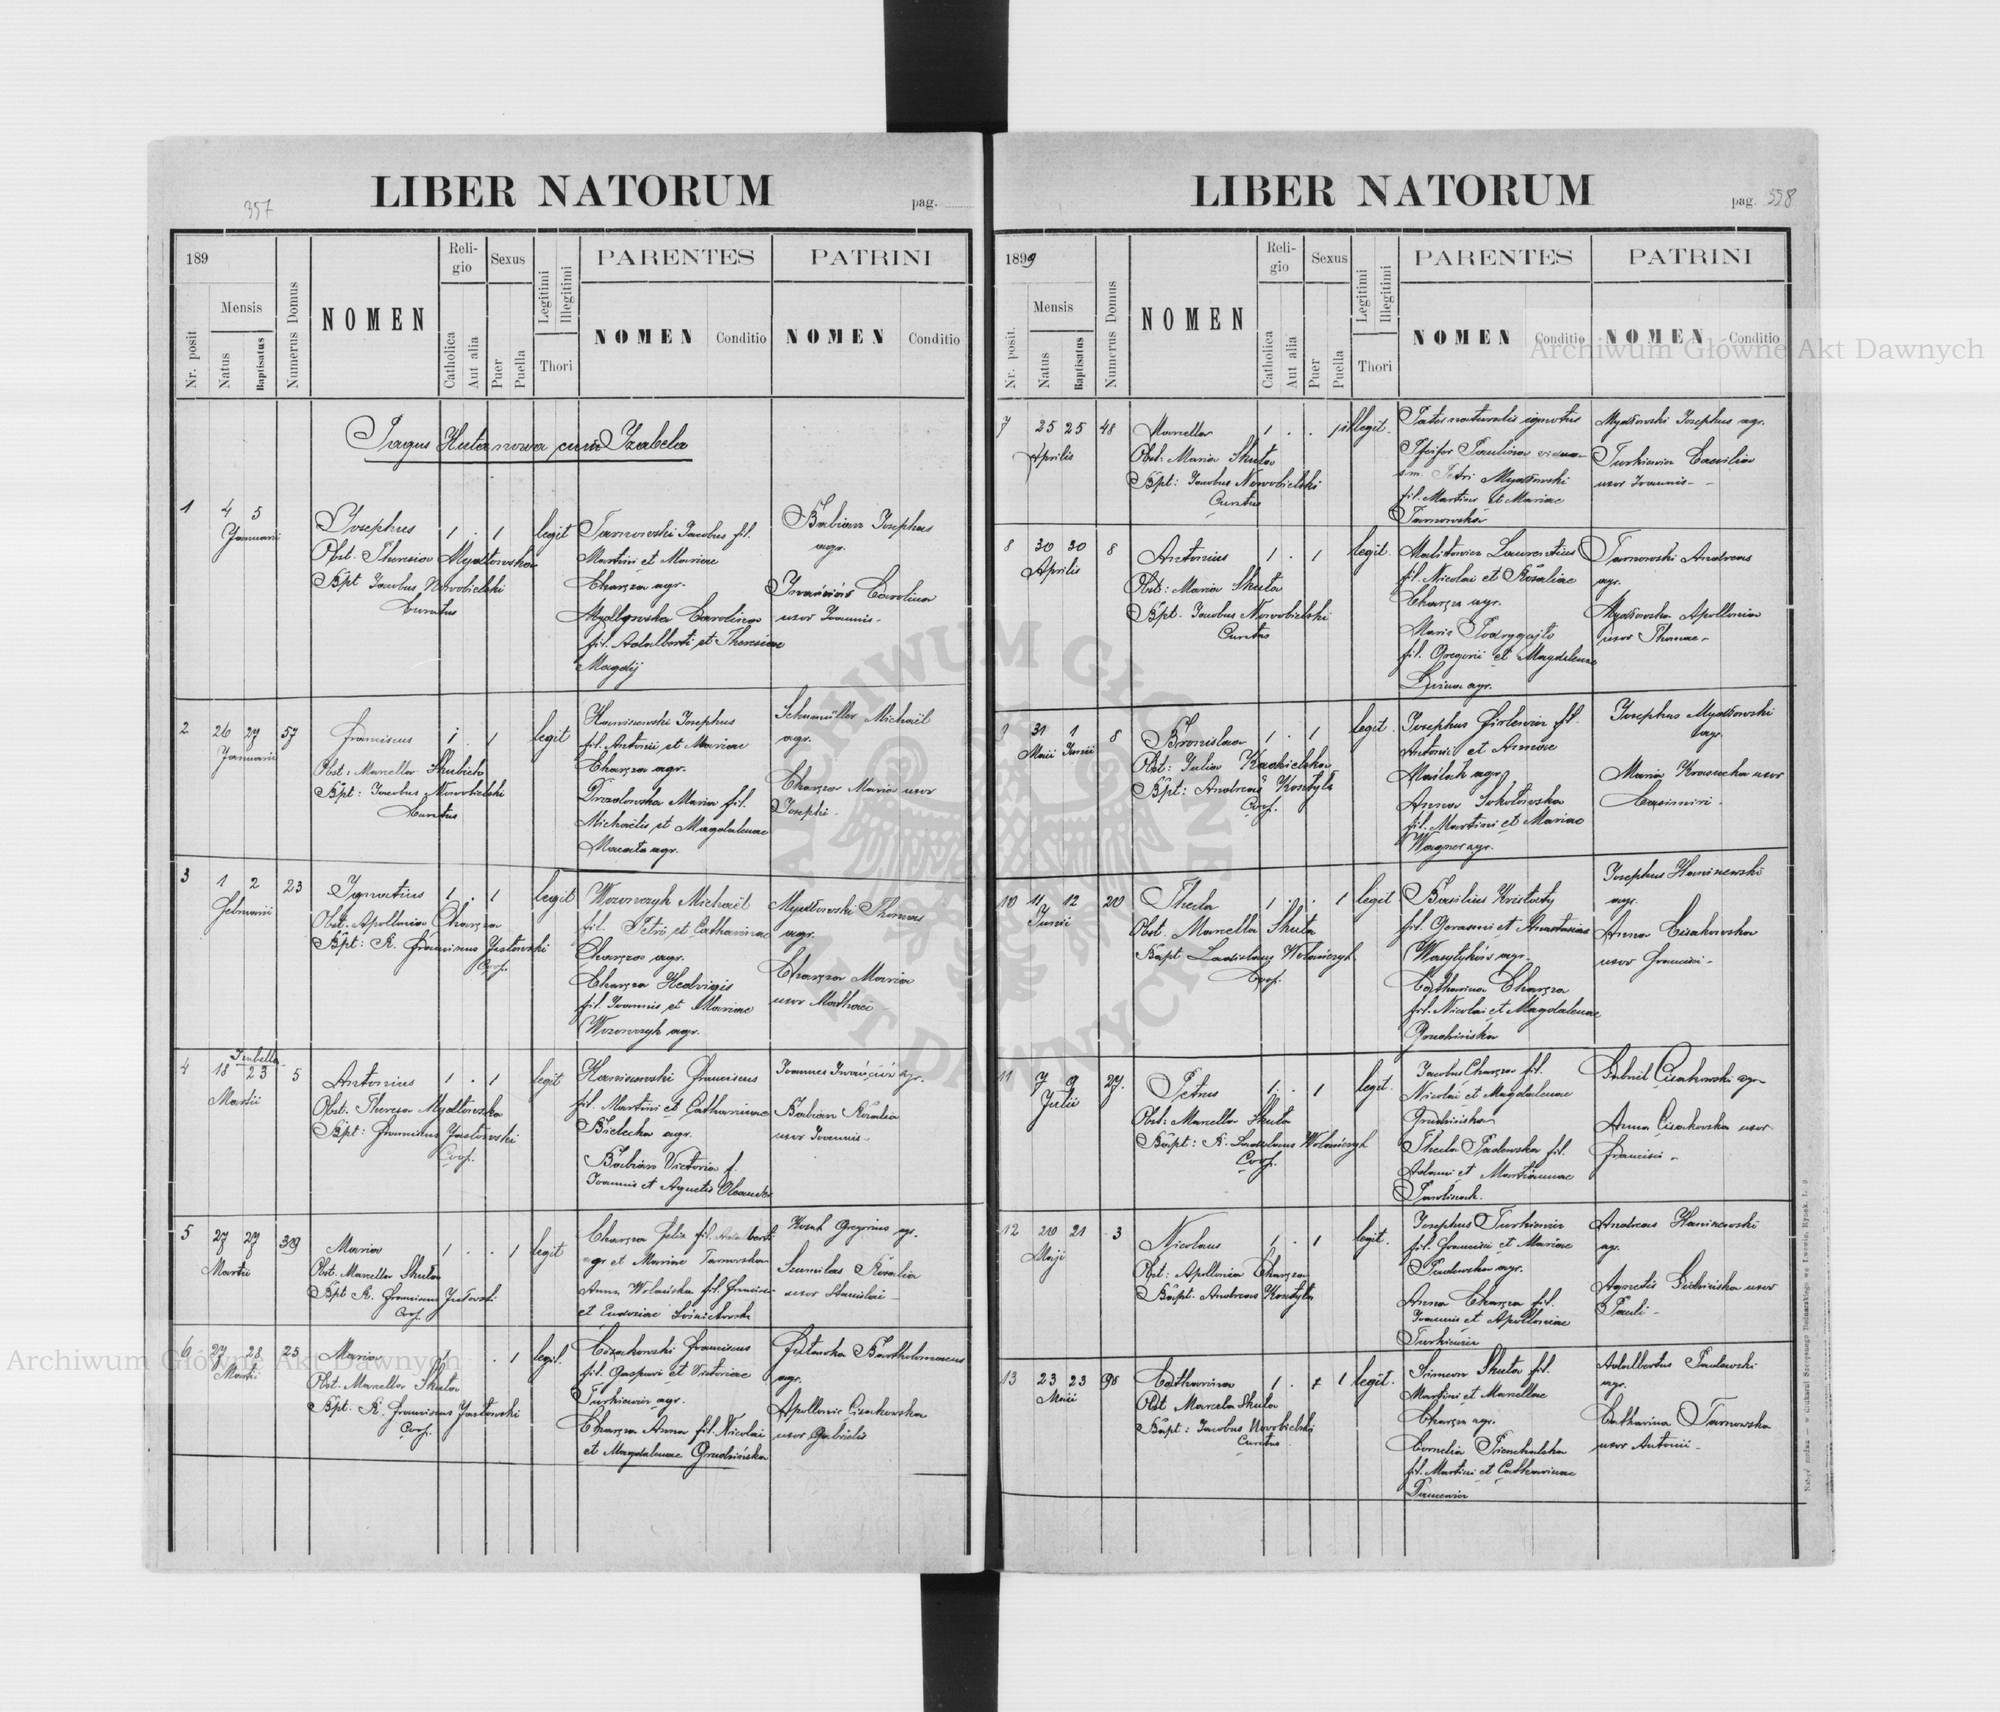 LIBER NATORUM
357
pag.
189
Nr. posit
Mensis
Natus
Baptisatus
Numerus Domus
NOMEN
Religio
Catholica
Aut alia
Sexus
Puer
Puella
Legitimi
Illegitimi
Thori
PARENTES
NOMEN
Conditio
PATRINI
NOMEN
Conditio
Pagus Huta nowa cum Izabela
1
4 5
Januarii
Josephus
Obst. Theresia Mydłowska
Bpt Jacobus Nowobielski
Curatus
1 . 1
legit
Tarnowski Jacobus fil.
Martini et Mariae
Charęza agr.
Mydłowska Carolina
fil. Adalberti et Theresiae
Magdij
Babian Josephus
agr.
Carolina
uxor Joannis.
2
26 27
Januarii
57
Franciscus
Obst: Marcella
Bpt: Jacobus Nowobielski
Curatus
1 . 1
legit
Haniszewski Josephus
fil. Antonii et Mariae
Charęza agr.
Drozdowska Maria fil.
Michaëlis et Magdalenae
agr.
Schumüller Michaël
agr.
Charęza Maria uxor
Josephi.
3
1 2
Februarii
23
Ignatius
Obst. Apollonia Charęza
Bpt: R. Franciscus Jastowski
Coop.
1 . 1
legit
Michaël
fil. Petri et Catharinae
Charęza agr.
Charęza Hedvigis
fil. Joannis et Mariae
agr.
Mydłowski Thomas
agr.
Charęza Maria
uxor Mathaei
4
Izabella
18 23
Martii
5
Antonius
Obst. Theresa Mydłowska
Bpt: Franciscus Jastowski
Coop.
1 . 1
legit
Haniszewski Franciscus
fil. Martini et Catharinae
Bielecka agr.
Babian Victoria f.
Joannis et Agnetis
Joannes agr.
Babian Rosalia
uxor Joannis.
5
27 27
Martii
39
Maria
Obst. Marcella Skuta
Bpt R. Franciscus Jastowski
Coop.
1 . . 1
legit
Charęza Felix fil. Adalberti
agr et Mariae Tarnowska
Anna Wolańska fil. Francisci
et
Gregorius agr.
Szumilas Rosalia
uxor Stanislai.
6
27 28
Martii
25
Maria
Obst. Marcella Skuta
Bpt. R. Franciscus Jastowski
Coop.
1 . . 1
legit.
Cisakowski Franciscus
fil. Gaspari et Victoriae
Turkiewicz agr.
Charęza Anna fil. Nicolai
et Magdalenae Grudzińska
Bartholomaeus
agr.
Apollonia Cisakowska
uxor Gabrielis
LIBER NATORUM
pag. 358
1899
Nr. posit.
Mensis
Natus
Baptisatus
Numerus Domus
NOMEN
Religio
Catholica
Aut alia
Sexus
Puer
Puella
Legitimi
Illegitimi
Thori
PARENTES
NOMEN
Conditio
PATRINI
NOMEN
Conditio
7
25 25
Aprilis
48
Marcella
Obst: Maria Skuta
Bpt: Jacobus Nowobielski
Curatus
1 . . 1
illegit.
Pater naturalis ignotus
Pfeifer Paulina vidua
p.m. Petri Mydłowski
fil. Martini et Mariae
Tarnowska
Mydłowski Josephus agr.
Turkiewicz Caecilia
uxor Joannis.
8
30 30
Aprilis
8
Antonius
Obst: Maria Skuta
Bpt. Jacobus Nowobielski
Curatus
1 . 1
legit.
Malitowicz Laurentius
fil. Nicolai et Rosaliae
Charęza agr.
Maria
fil. Gregorii et Magdalenae
agr.
Tarnowski Andreas
agr.
Mydłowska Apollonia
uxor Thomae.
9
31 1
Maii Junii
8
Bronislaus
Obst: Julia
Bpt: Andreas Kosztyła
Coop.
1 . 1
legit.
Josephus fil.
Antonii et Annae
agr.
Anna Sokołowska
fil. Martini et Mariae
Wagner agr.
Josephus Mydłowski
agr.
Maria Krasucka uxor
Casimiri.
10
11 12
Junii
20
Thecla
Obst. Marcella Skuta
Bapt Ladislaus Wołańczyk
Coop.
1 . . 1
legit
Basilius
fil. Gerasimi et Anastasiae
agr.
Catharina Charęza
fil. Nicolai et Magdalenae
Grudzińska
Josephus Haniszewski
agr.
Anna Cisakowska
uxor Francisci.
11
7 9
Julii
27.
Petrus
Obst: Marcella Skuta
Bapt: R. Ladislaus Wołańczyk
Coop.
1 . 1
legit.
Jacobus Charęza fil.
Nicolai et Magdalenae
Grudzińska
Thecla Padowska fil.
Adami et Martiannae
Gabriel Cisakowski agr.
Anna Cisakowska uxor
Francisci.
12
20 21
Maji
3
Nicolaus
Obst: Apollonia Charęza
Bapt. Andreas Kosztyła
1 . 1
legit.
Josephus Turkiewicz
fil. Francisci et Mariae
Padowska agr.
Anna Charęza fil.
Joannis et Apolloniae
Turkiewicz
Andreas Haniszewski
agr.
Agnetis uxor
Pauli.
13
23 23
Maii
98
Catharina
Obst Marcela Skuta
Bapt: Jacobus Nowobielski
Curatus
1 . 1
legit.
Simeon Skuta fil.
Martini et Marcellae
Charęza agr.
Cornelia
fil. Martini et Catharinae
Adalbertus Padowski
agr.
Catharina Tarnowska
uxor Antonii.
Archiwum Główne Akt Dawnych
Archiwum Główne Akt Dawnych
ARCHIWUM GŁÓWNE AKT DAWNYCH